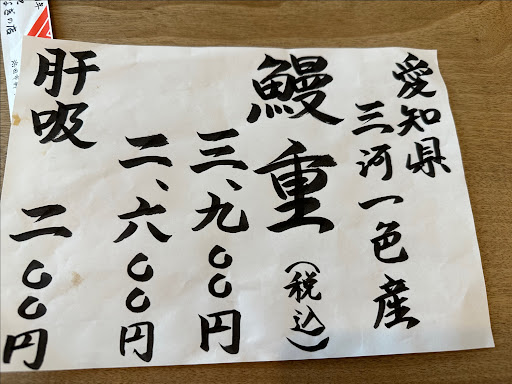 愛知県
三河一色産
鰻重(税込)
三、九〇〇円
二、六〇〇円
肝吸 二〇〇円